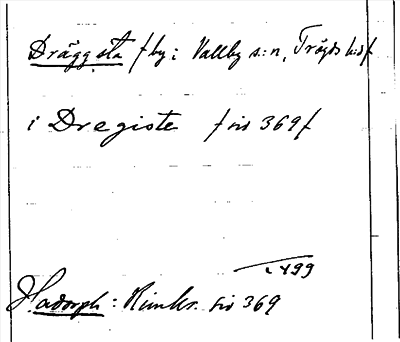 Dräggsta /by i Vallby s:n, Trögds hd/
i Dregiste / sid 369/
1499
Hadorph: Rimkr. sid 369